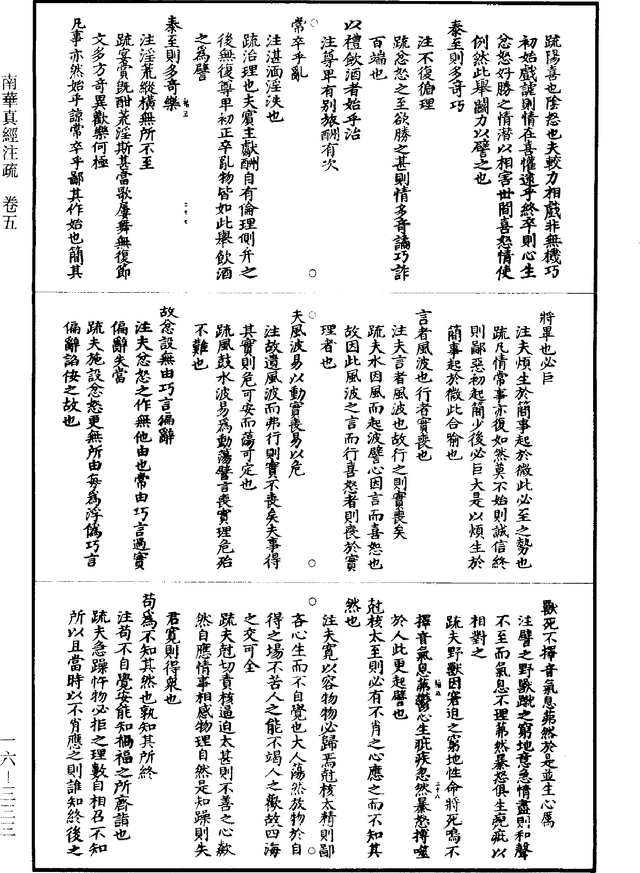 疏陽喜也陰怒也夫較力相戲非無機巧
初始戲謔則情在喜懽逮乎終卒則心生
忿怒好勝之情潜以相害世間喜怒情使
例然此舉鬪力以譬之也
泰至則多奇巧
注不復循理
疏忿怒之至欲勝之甚則情多奇譎巧詐
百端也
以禮飲酒者始乎治
注尊卑有別旅酬有次
常卒乎亂
注湛湎淫泆也
疏治理也夫賓主獻酬自有倫理側弁之
後無復尊卑初正卒亂物皆如此舉飲酒
之為譬
泰至則多奇樂
注淫荒縱橫無所不至
疏宴賞既酣荒淫斯甚當歌屢舞無復節
文多方奇異歡樂何極
凡事亦然始乎諒常卒乎鄙其作始也簡其
將畢也必巨
注夫煩生於簡事起於微此必至之勢也
疏凡情常事亦復如然莫不始則誠信終
則鄙惡初起簡少後必巨大是以煩生於
簡事起於微此合喻也
言者風波也行者實喪也
注夫言者風波也故行之則實喪矣
疏夫水因風而起波譬心因言而喜怒也
故因此風波之言而行喜怒者則喪於實
理者也
夫風波易以動實喪易以危
注故遺風波而弗行則實不喪矣夫事得
其實則危可安而蕩可定也
疏風鼓水波易為動蕩譬言喪實理危殆
不難也
故忿設無由巧言偏辭
注夫忿怒之作無他由也常由巧言過實
偏辭失當
疏夫施設忿怒更無所由每為浮偽巧言
偏辭諂佞之故也
獸死不擇音氣息茀然於是並生心厲
注譬之野獸蹴之窮地意急情盡則和聲
不至而氣息不理茀然暴怒俱生疵疵以
相對之
疏夫野獸因窘迫之窮地性命將死鳴不
擇音氣息茀鬱心生疵疾忽然暴怒搏噬
於人此更起譬也
尅核太至則必有不肖之心應之而不知其
然也
注夫寬以容物物必歸焉尅核太精則鄙
吝心生而不自覺也大人蕩然放物於自
得之場不苦人之能不竭人之歡故四海
之交可全
疏夫尅切責核逼迫太甚則不善之心歘
然自應情事相感物理自然是知躁則失
君寬則得衆也
苟為不知其然也孰知其所終
注苟不自覺安能知禍福之所齊詣也
疏夫急躁忤物必拒之理數自相召不知
所以且當時以不肖應之則誰知終後之
南華真經注疏　卷五
一六—三三三